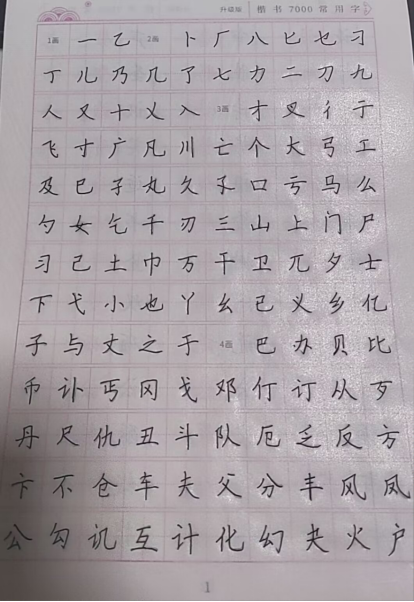 升级版 楷书7000常用字
1画 一 乙 2画 卜 厂 八 匕 乜 刁
丁 儿 乃 几 了 七 力 二 刀 九
人 又 十 乂 入 3画 才 叉 彳 亍
飞 寸 广 凡 川 亡 个 大 弓 工
及 巳 孑 丸 久 孓 口 亏 马 么
勺 女 乞 千 刃 三 山 上 门 尸
习 己 土 巾 万 干 卫 兀 夕 士
下 弋 小 也 丫 幺 已 义 乡 亿
子 与 丈 之 于 4画 巴 办 贝 比
币 讣 丐 冈 戈 邓 仃 订 从 歹
丹 尺 仇 丑 斗 队 厄 乏 反 方
卞 不 仓 车 夫 父 分 丰 风 凤
公 勾 讥 互 计 化 幻 夬 火 户
1